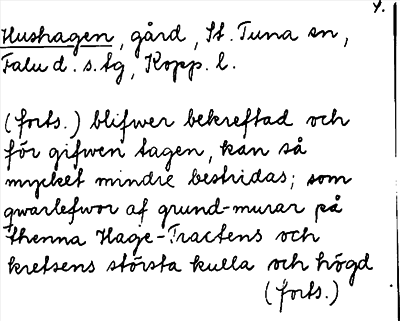 4.
Hushagen, gård, St. Tuna sn,
Falu d. s. tg, Kopp. l.
(forts.) blifwer bekreftad och
för gifwen tagen, kan så
mycket mindre bestridas; som
qwarlefwor af grund-murar på
thenna Hage-Tractens och
kretsens största kulla och högd
(forts.)